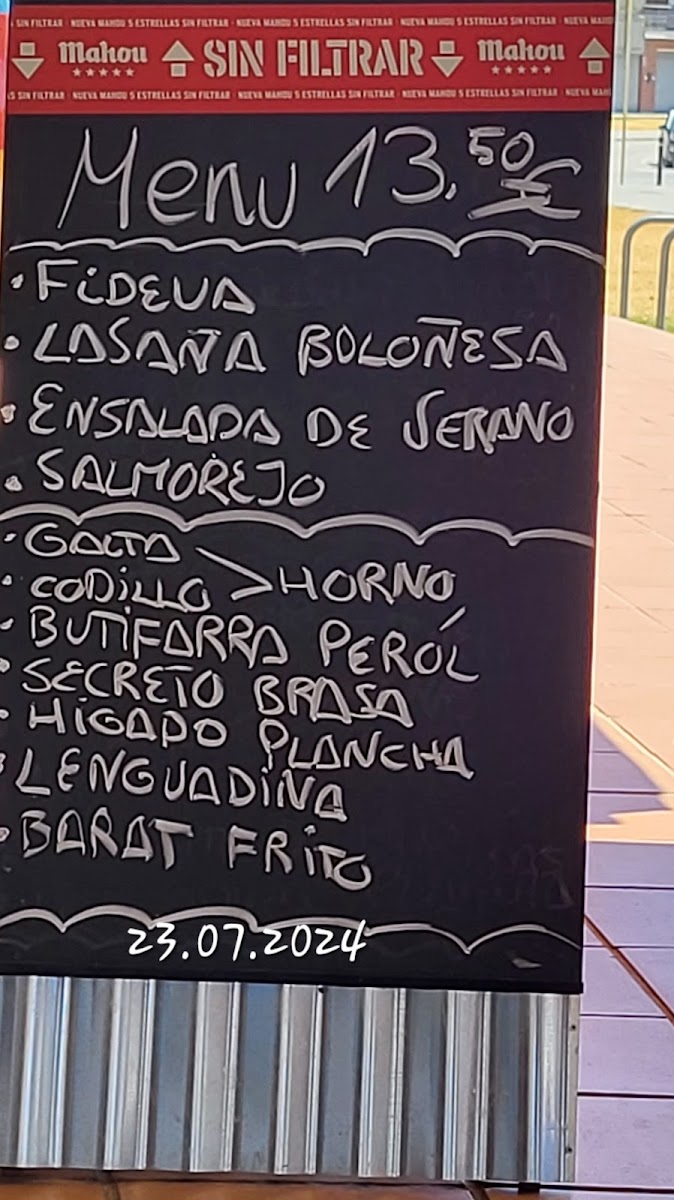 SIN FILTRAR · NUEVA MAHOU 5 ESTRELLAS SIN FILTRAR · NUEVA MAHOU 5 ESTRELLAS SIN FILTRAR · NUEVA MAHOU 5 ESTRELLAS SIN FILTRAR · NUEVA MAHOU
Mahou SIN FILTRAR Mahou
SIN FILTRAR · NUEVA MAHOU 5 ESTRELLAS SIN FILTRAR · NUEVA MAHOU 5 ESTRELLAS SIN FILTRAR · NUEVA MAHOU 5 ESTRELLAS SIN FILTRAR · NUEVA
Menu 13.50€
· FiDEUA
· LASAÑA BOLOÑESA
· ENSALADA DE VERANO
· SALMOREJO
· GALTA
· CODiLLO > HORNO
· BUTIFARRA PERÓL
· SECRETO BRASA
· HIGADO PLANCHA
· LENGUADiNA
· BARAT FRiTO
23.07.2024